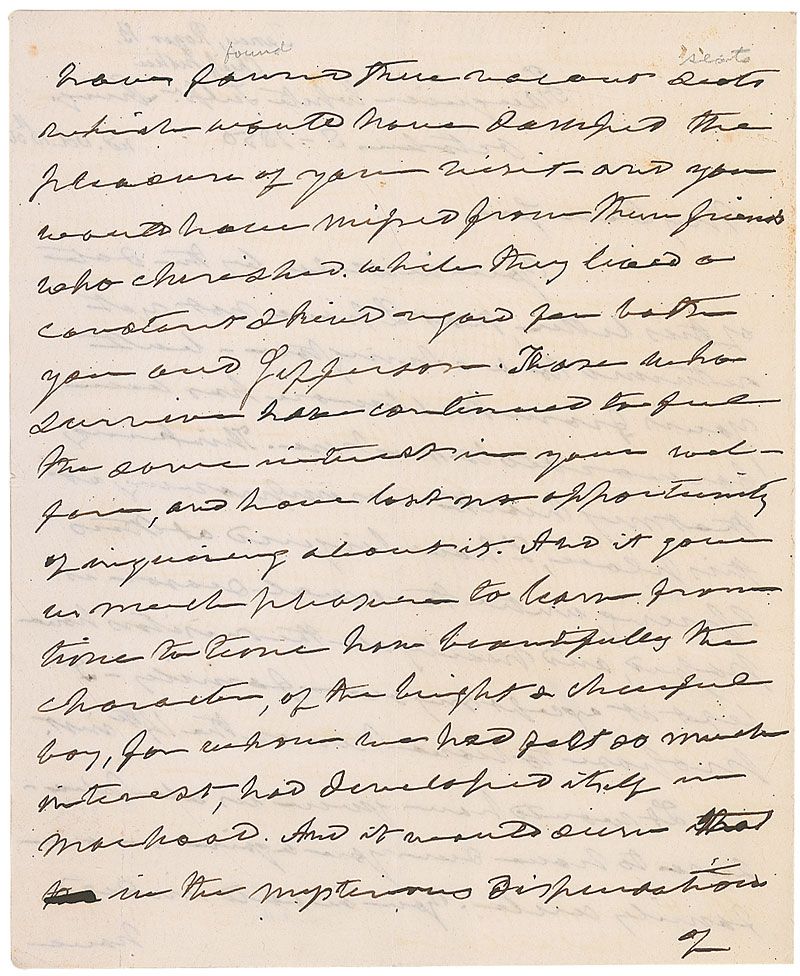 found seats
have found three vacant seats
which would have damped the
pleasure of your visit - and you
would have missed from them friends
who cherished, while they lived a
constant & kind regard for both
you and Jefferson. Those who
survive have continued to feel
the same interest in your wel-
fare, and have lost no opportunity
of inquiring about it. And it gave
us much pleasure to learn from
time to time how beautifully the
character, of the bright & cheerful
boy, for whom we had felt so much
interest, had developed itself in
manhood. And it would seem that
in the mysterious dispensation
of